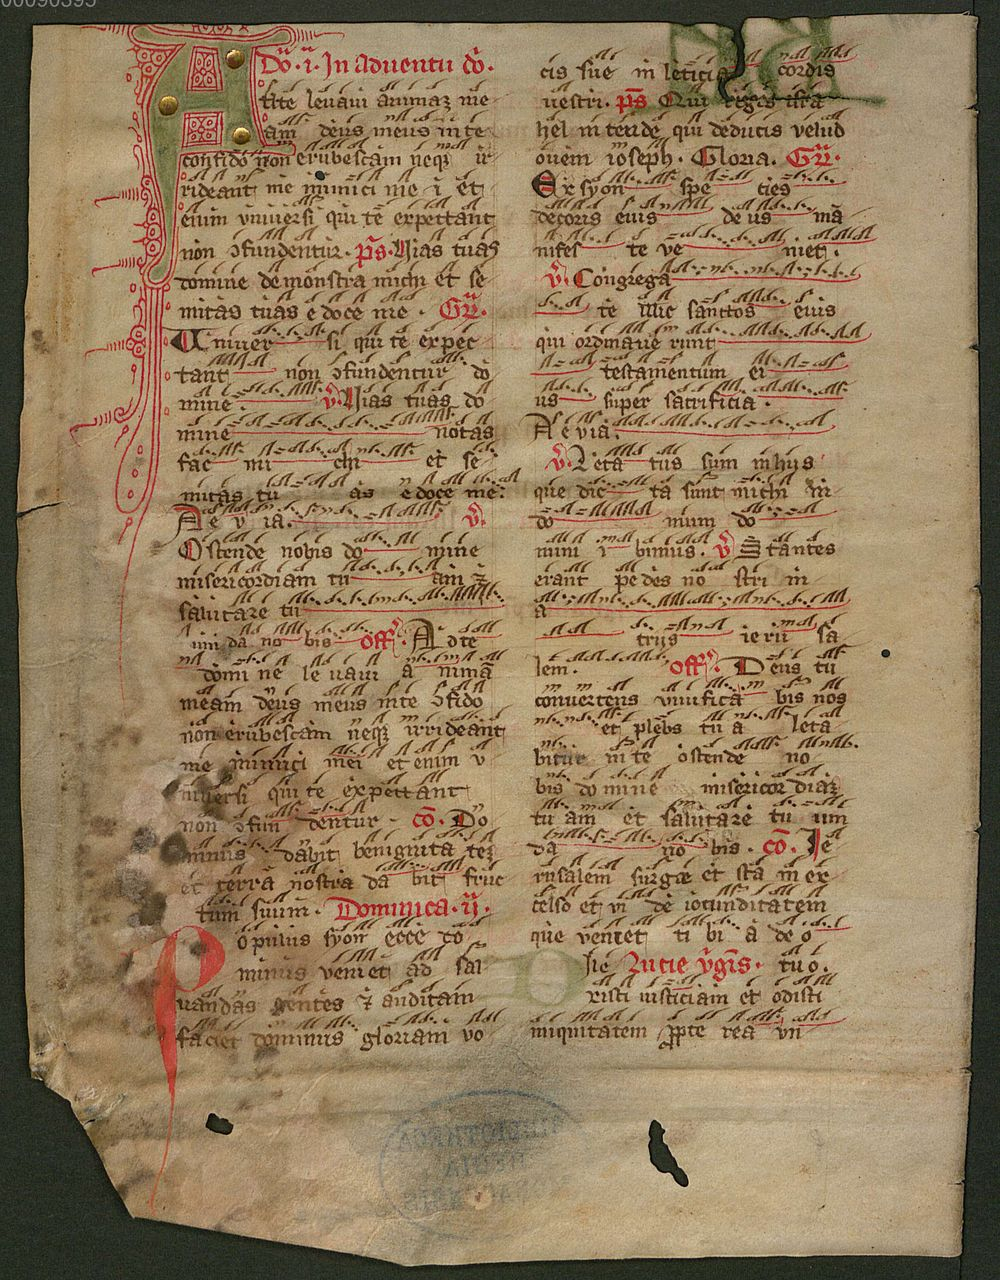 00090395
Do͞. i͞. In aduentu do͞.
A
d te leuaui animaꝫ me
am deus meus in te
confido non erubescam neqꝫ ir
rideant me inimici me i et
enim vniuersi qui te expettant
non ↄfundentur. ps͞. Vias tuas
domine demonstra michi et se
mitas tuas edoce me. Gr͞.
Vniuer si qui te expec
tant non ↄfundentur do
mine. v͞. Vias tuas do
mine notas
fac mi chi et se
mitas tu as edoce me.
Ae v ia. v͞.
Ostende nobis do mine
misericordiam tu am ⁊
salutare tu
um da no bis off͞. Ad te
domi ne le uaui a nimā
meam deus meus in te ↄfido
non erubescam neqꝫ irrideant
me inimici mei et enim v
niuersi qui te expettant
non ↄfun dentur. co͞. Do
minus dabit benignita teꝫ
et terrā nostra da bit fruc
tum suum. Dominica. ij.
Populus syon ecce do
minus veniet ad sal
uandas gentes ⁊ auditam
faciet dominus gloriam vo
cis sue in leticia cordis
uestri. ps͞. Qui regis isra
hel intende qui deducis velud
ouem ioseph. Gloria. Gr͞.
Ex syon spe cies
decoris eius de us ma
nifes te ve niet.
v͞. Congrega
te illic sanctos eius
qui ordinaue runt
testamentum ei
us super sacrificia.
Ae via.
v͞. Leta tus sum in hijs
que dic ta sunt michi in
do mum do
mini i bimus. v͞ Stantes
erant pedes no stri in
a
trijs ieru sa
lem. off͞. Deus tu
conuertens viuifica bis nos
et plebs tu a leta
bitur in te ostende no
bis domine misericordiaꝫ
tu am et salutare tu um
da no bis. co͞. Ie
rusalem surge et sta in ex
celso et vi de iocunditatem
que veniet ti bi a deo
tuo. Lucie v͞gis.
risti iusticiam et odisti
iniquitatem ꝓpte rea vn
BIBLIOTHECA
REGIA
MONACENSIS